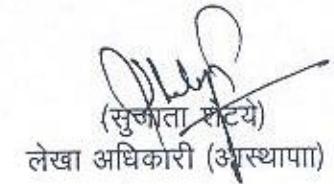 (सुजाता शेटये)
लेखा अधिकारी (आस्थापाा)